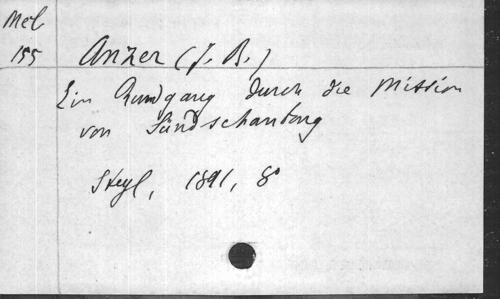 Mel
155
Anzer (J. B.)
Ein Rundgang durch die Mission
von Südschantong
Steyl, 1891, 8°